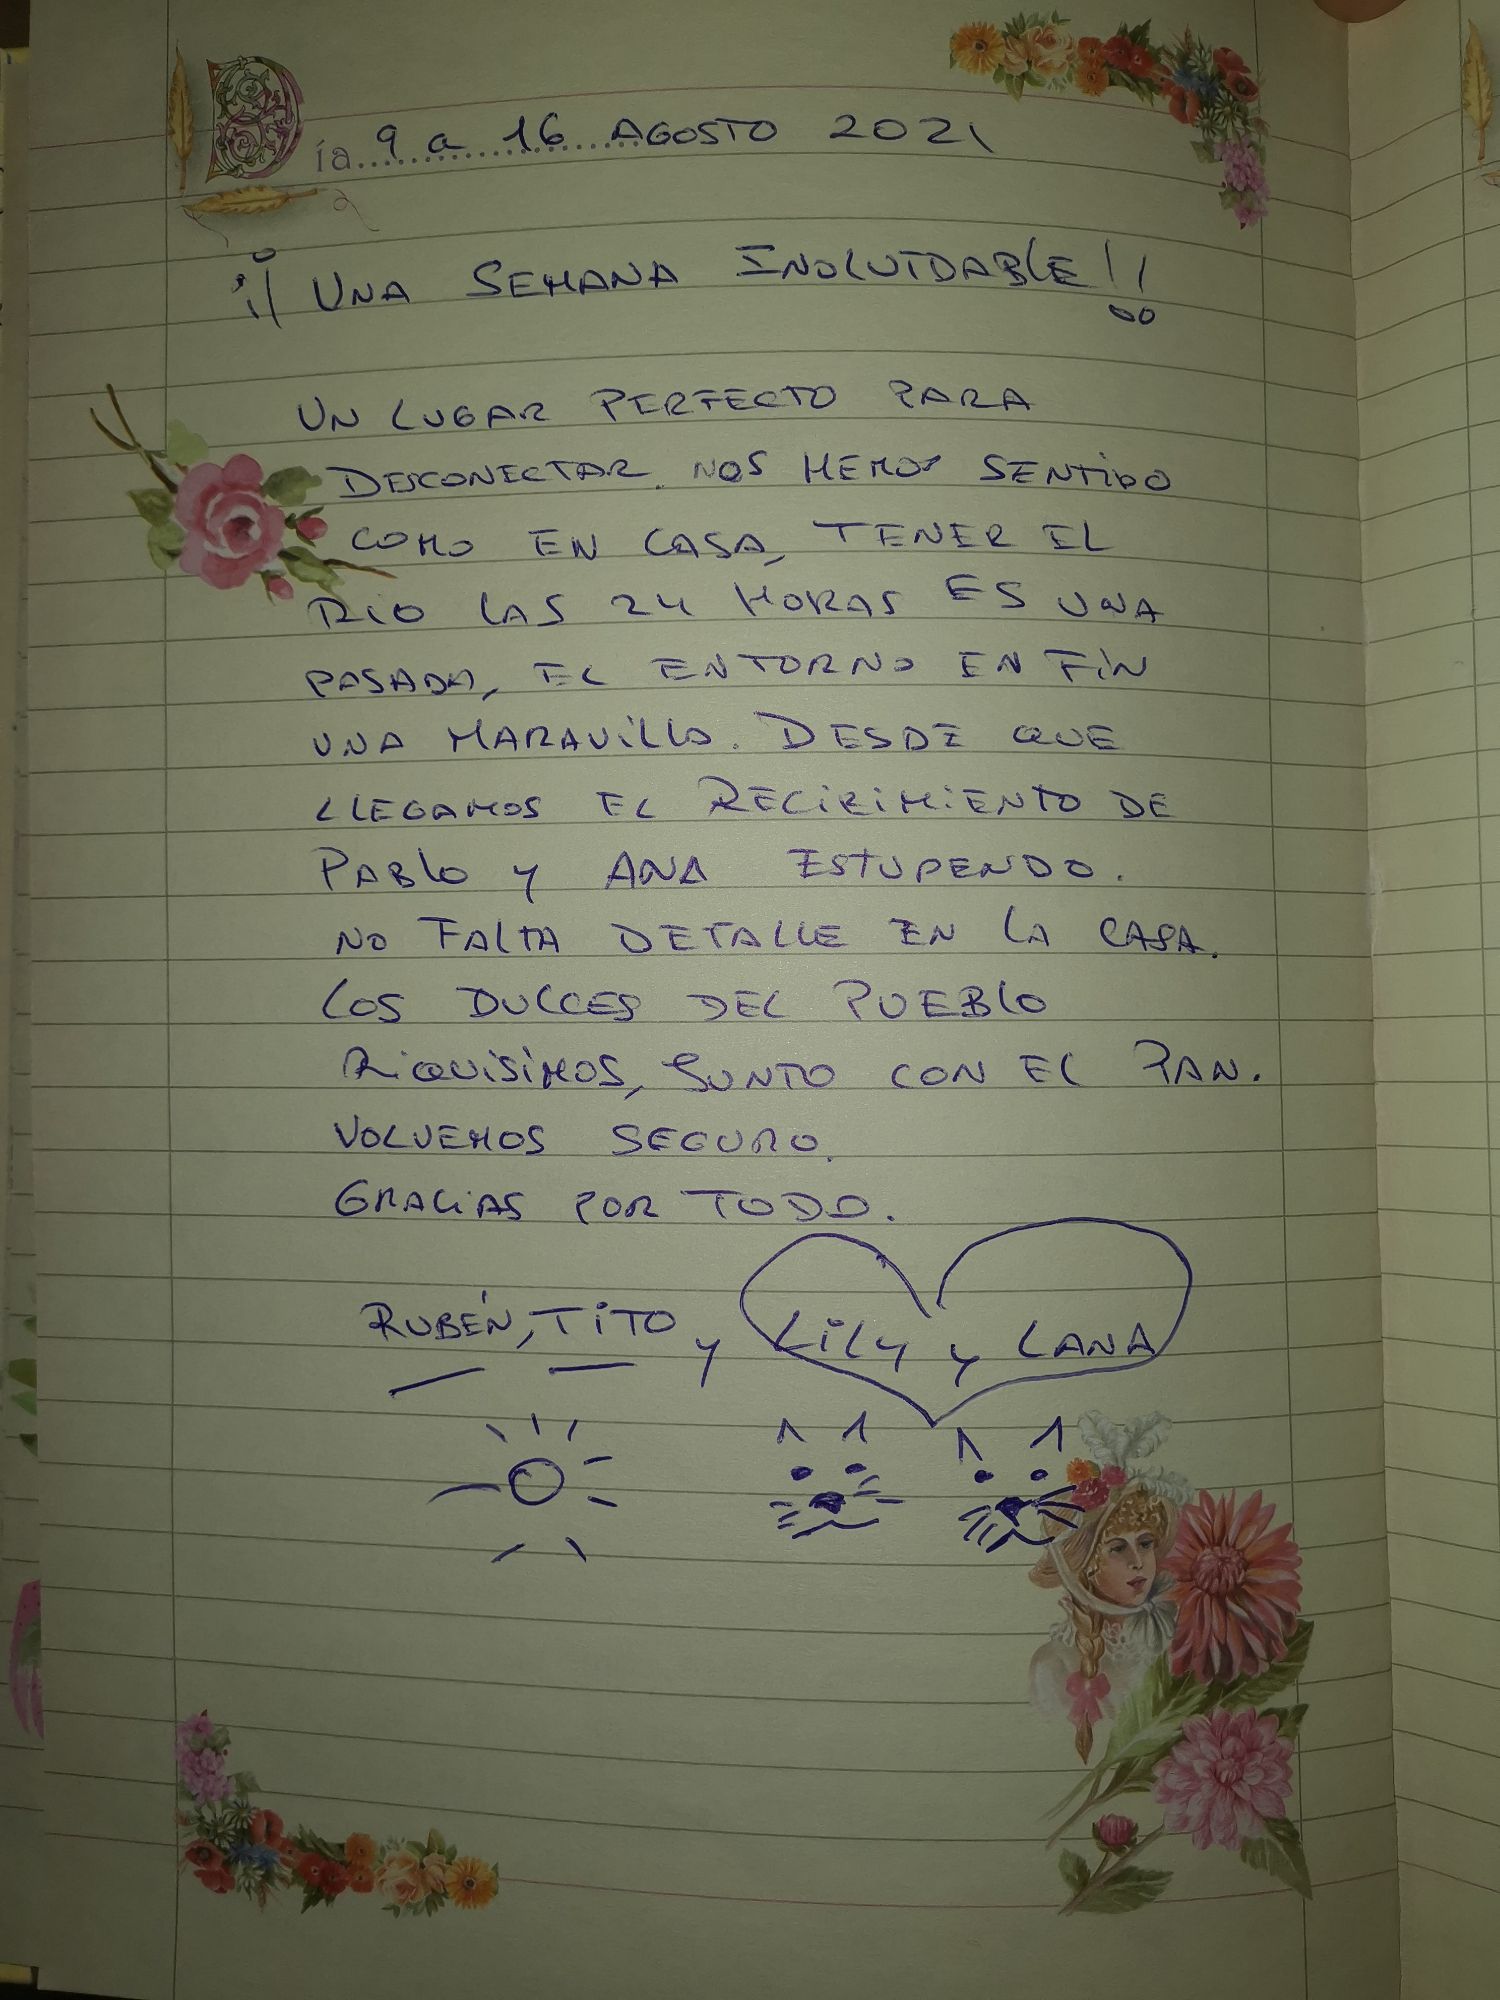 Día 9 a 16 AGOSTO 2021
¡¡ UNA SEMANA INOLVIDABLE!!
UN LUGAR PERFECTO PARA
DESCONECTAR. NOS HEMOS SENTIDO
COMO EN CASA, TENER EL
RIO LAS 24 HORAS ES UNA
PASADA, EL ENTORNO EN FIN
UNA MARAVILLA. DESDE QUE
LLEGAMOS EL RECIBIMIENTO DE
PABLO Y ANA ESTUPENDO.
NO FALTA DETALLE EN LA CASA.
LOS DULCES DEL PUEBLO
RIQUISIMOS, JUNTO CON EL PAN.
VOLVEMOS SEGURO.
GRACIAS POR TODO.
RUBÉN, TITO y LILY y LANA